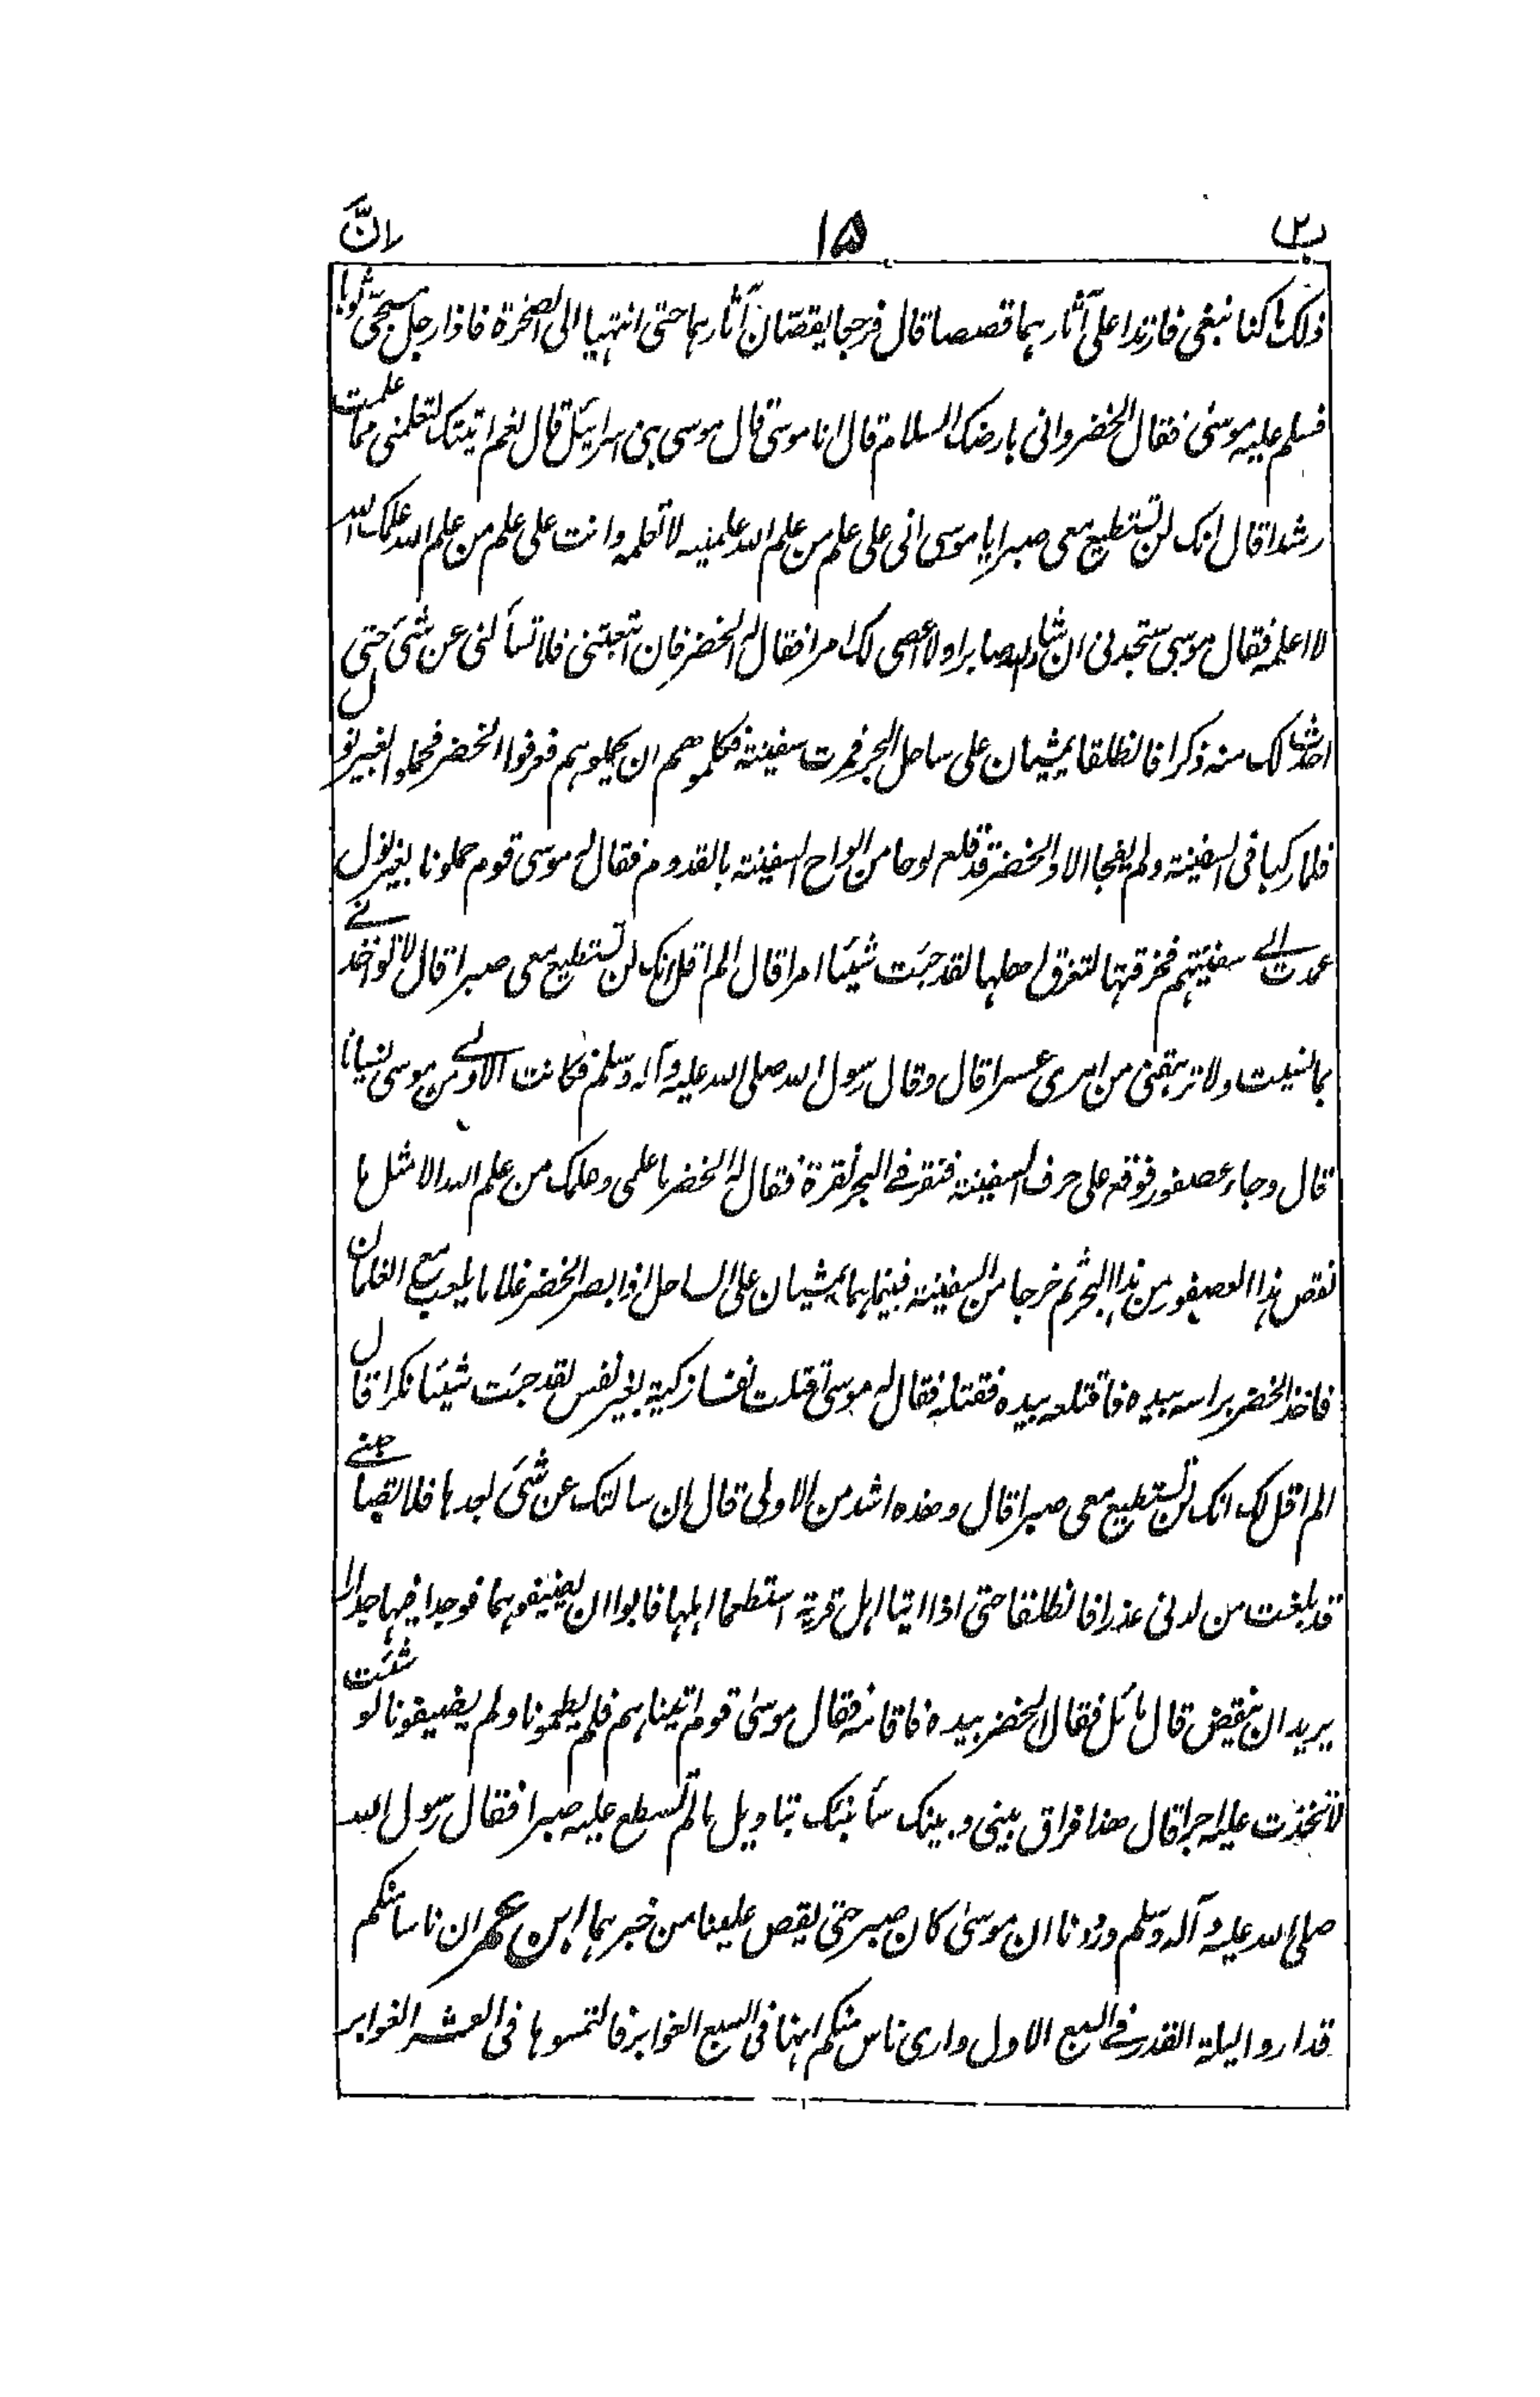 ب۲ ۱۵ انَّ
ذلك ما كنا نبغى فارتدا على آثارهما قصصا قال فرجعا يقصّان آثارهما حتى انتهيا الى الصخرة فاذا رجل مسجّى ثوبا
فسلم عليه موسى فقال الخضر وانى بارضك السلام قال انا موسى قال موسى بنى اسرائيل قال نعم اتيتك لتعلمنى مما علمت
رشدا قال انك لن تستطيع معى صبرا يا موسى انى على علم من علم الله علمنيه لا تعلمه وانت على علم من علم الله علمك الله
لا اعلمه فقال موسى ستجدنى ان شاء الله صابرا ولا اعصى لك امرا فقال له الخضر فان اتبعتنى فلا تسألنى عن شئ حتى
احدث لك منه ذكرا فانطلقا يمشيان على ساحل البحر فمرت سفينة فكلموهم ان يحملوهم فعرفوا الخضر فحملوا بغير نول
فلما ركبا فى السفينة ولم يفجا الا والخضر قد قلع لوحا من الواح السفينة بالقدوم فقال له موسى قوم حملونا بغير نول
عمدت الى سفينتهم فخرقتها لتغرق اهلها لقد جئت شيئا امرا قال الم اقل انك لن تستطيع معى صبرا قال لا تواخذنى
بما نسيت ولا ترهقنى من امرى عسرا قال وقال رسول الله صلى الله عليه وآله وسلم فكانت الاولى من موسى نسيانا
قال وجاء عصفور فوقع على حرف السفينة فنقر فى البحر نقرة فقال له الخضر ما علمى وعلمك من علم الله الا مثل ما
نقص هذا العصفور من هذا البحر ثم خرجا من السفينة فبينما هما يمشيان على الساحل اذ ابصر الخضر غلاما يلعب مع الغلمان
فاخذ الخضر براسه بيده فاقتلعه بيده فقتله فقال له موسى قتلت نفسا زكية بغير نفس لقد جئت شيئا نكرا قال
الم اقل لك انك لن تستطيع معى صبرا قال وهذه اشد من الاولى قال ان سالتك عن شئ بعدها فلا تصاحبنى
قد بلغت من لدنى عذرا فانطلقا حتى اذا اتيا اهل قرية استطعما اهلها فابوا ان يضيفوهما فوجدا فيها جدارا
يريد ان ينقض قال مائل فقال الخضر بيده فاقامه فقال موسى قوم اتيناهم فلم يطعمونا ولم يضيفونا لو شئت
لاتخذت عليه اجرا قال هذا فراق بينى وبينك سأنبئك بتاويل ما لم تسطع عليه صبرا فقال رسول الله
صلى الله عليه وآله وسلم وددنا ان موسى كان صبر حتى يقص علينا من خبرهما ابن عمر ان ناسا منكم
قد اروا ليلة القدر فى السبع الاول وارى ناس منكم انها فى السبع الغوابر فالتمسوها فى العشر الغوابر